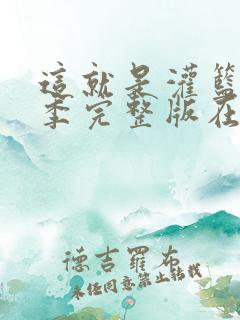 這就是灌籃
季完整版在
德吉羅布
未任同意禁止轉載